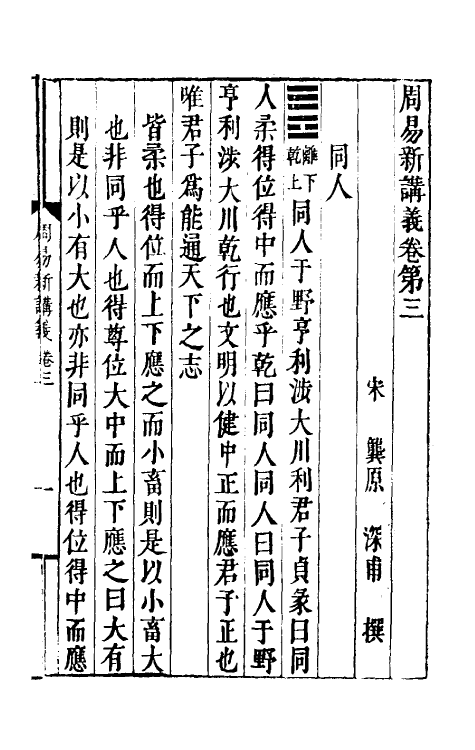 周易新講義卷第三
宋　龔原　深甫　撰
同人
䷌離下乾上同人于野亨利涉大川利君子貞彖曰同
人柔得位得中而應乎乾曰同人同人曰同人于野
亨利涉大川乾行也文明以健中正而應君子正也
唯君子爲能通天下之志
皆柔也得位而上下應之而小畜則是以小畜大
也非同乎人也得尊位大中而上下應之曰大有
則是以小有大也亦非同乎人也得位得中而應
周易新講義卷三　一